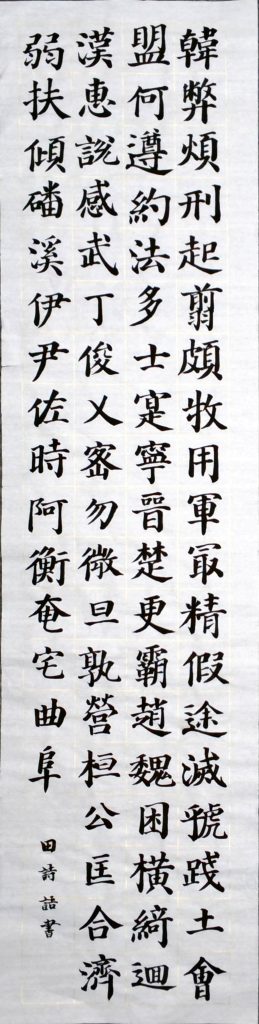 韓弊煩刑起翦頗牧用軍冣精假途滅虢踐土會
盟何遵約法多士寔寧晉楚更霸趙魏困橫綺迴
漢惠說感武丁俊乂密勿微旦孰營桓公匡合濟
弱扶傾磻溪伊尹佐時阿衡奄宅曲阜
田詩詰書